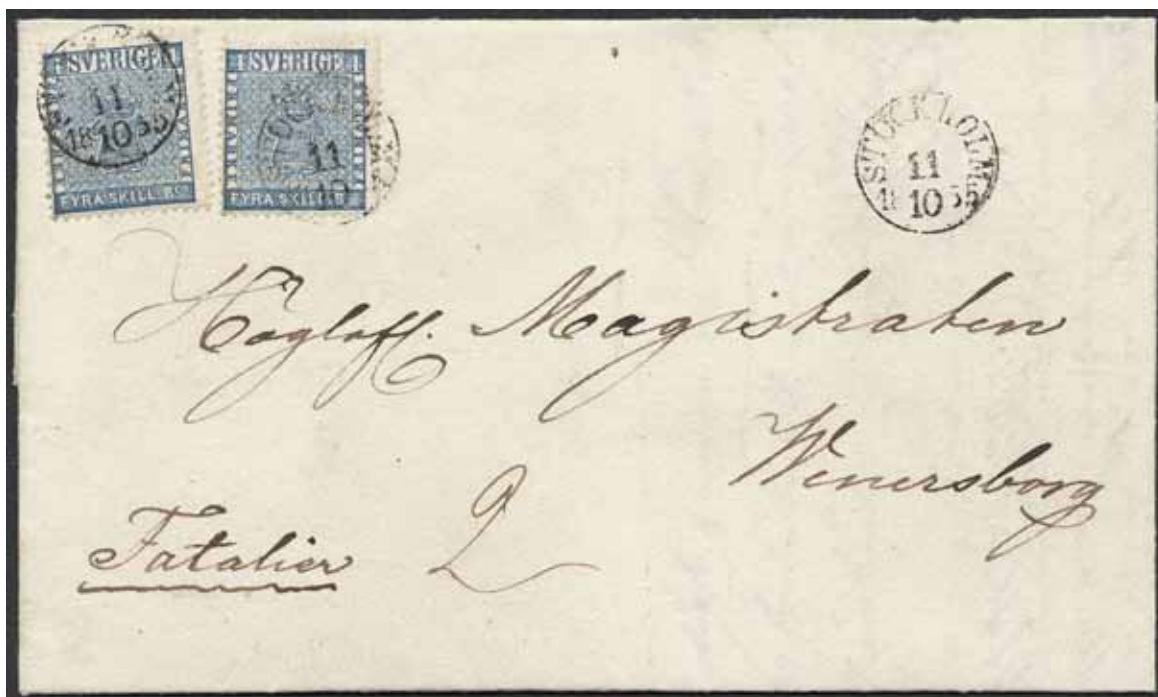 1 SVERIGE 1
11
18 10 55
FYRA SKILL.B
1 SVERIGE 1
11
10
FYRA SKILL.B
STOCKHOLM
11
18 10 55
Högloff. Magistraten
Wenersborg
Fatalier 2